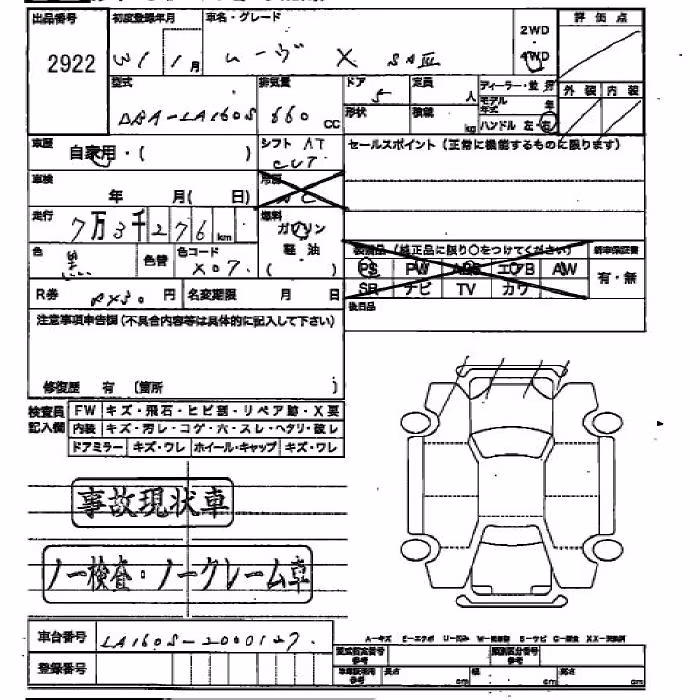 出品番号 初度登録年月 車名・グレード 2WD 評価点
2922 H31 1月 ムーヴ X SAⅢ 4WD
型式 排気量 ドア 定員 ディーラー・並行 外装 内装
DBA-LA160S 660 CC 5 人 モデル年式 年
形状 積載 kg ハンドル 左・右
車歴 自家用・( ) シフト AT CVT セールスポイント(正常に機能するものに限ります)
車検 年 月( 日) 冷房 AC
走行 7万3千276km 燃料 ガソリン
軽油
( )
装備品(純正品に限り○をつけてください) 新車保証書
色 黒 色替 色コード X07 PS PW ABS エアB AW 有・無
R券 円 名変期限 月 日 SR ナビ TV カワ
後日品
注意事項申告欄(不具合内容等は具体的に記入して下さい)
修復歴 有 〔箇所 〕
検査員記入欄 FW キズ・飛石・ヒビ割・リペア跡・X要
内装 キズ・汚レ・コゲ・穴・スレ・ヘタリ・破レ
ドアミラー キズ・ワレ ホイール・キャップ キズ・ワレ
事故現状車
ノー検査・ノークレーム車
車台番号 LA160S-2000127
型式指定番号 参考 類別区分番号 参考
登録番号 長さ cm 幅 cm 高さ cm